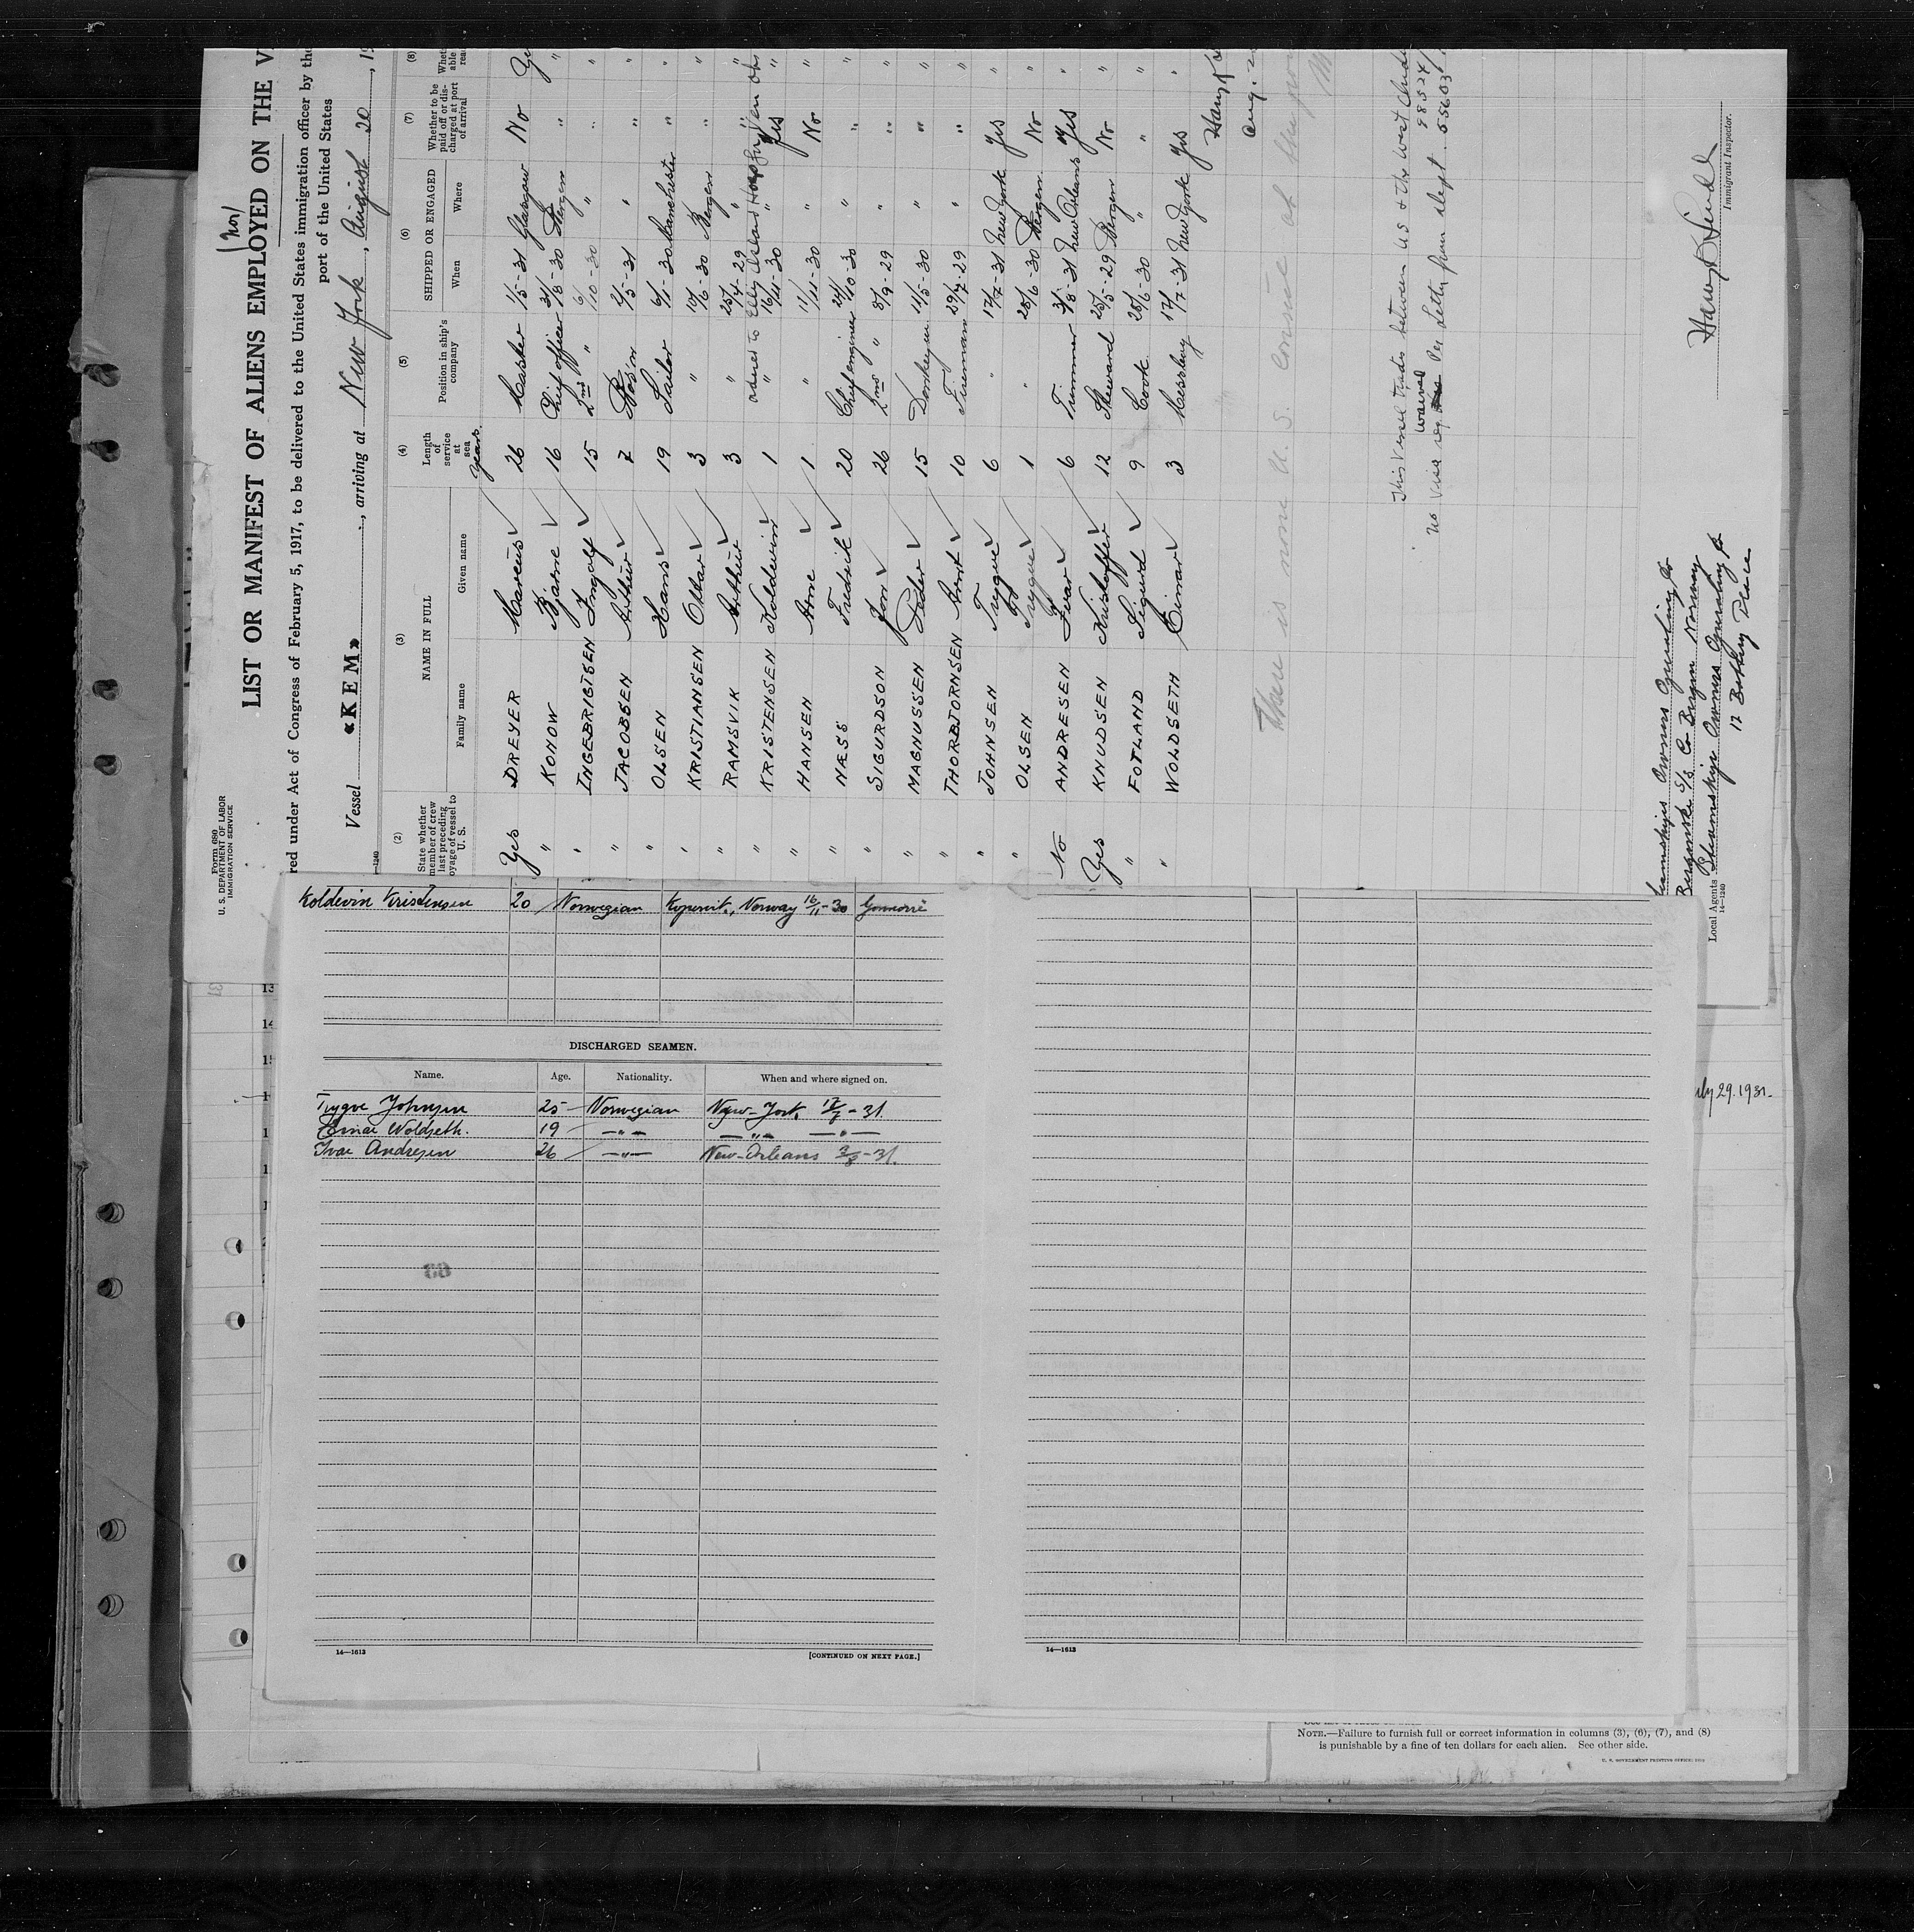 Form 680
U. S. DEPARTMENT OF LABOR
IMMIGRATION SERVICE
(Nor)
LIST OR MANIFEST OF ALIENS EMPLOYED ON THE
red under Act of Congress of February 5, 1917, to be delivered to the United States immigration officer by the
port of the United States
Vessel «KEM», arriving at New York, August 20, 19
(2) (3) (4) (5) (6) (7) (8)
State whether member of crew last preceding voyage of vessel to U. S.
NAME IN FULL
Family name Given name
Length of service at sea
Years
Position in ship's company
SHIPPED OR ENGAGED
When Where
Whether to be paid off or discharged at port of arrival
Yes DREYER Marcus 26 Master 1/5-31 Glasgow No
" KONOW Bjarne 16 Chief officer 30 Bergen "
" INGEBRIGTSEN Ingolf 15 2nd " 6/10-30 " "
" JACOBSEN Arthur 7 Bos'n 2/5-31 " "
" OLSEN Hans 19 Sailor 6/1-30 Manchester "
" KRISTIANSEN Ottar 3 " 19/6-30 Bergen "
" RAMSVIK Arthur 3 " 25/4-29 " "
ordered to Ellis Island Hosp for
" KRISTENSEN Koldevin 1 " 16/11-30 " Yes
" HANSEN Arne 1 " 11/11-30 " No
" NÆSS Fredrik 20 Chief engineer 24/10-30 " "
" SIGURDSON Jon 26 2nd " 8/9-29 " "
" MAGNUSSEN Peder 15 Donkeyman 11/5-30 " "
" THORBJORNSEN Arnt 10 Fireman 29/7-29 " "
" JOHNSEN Trygve 6 " 17/7-31 New York Yes
" OLSEN Trygve 1 " 28/6-30 Bergen No
No ANDRESEN Ivar 6 Trimmer 3/8-31 New Orleans Yes
Yes KNUDSEN Kristoffer 12 Steward 25/5-29 Bergen No
" FOTLAND Sigurd 9 Cook 25/6-30 " "
" WOLDSETH Einar 3 Messboy 17/7-31 New York Yes
There is none U. S. Consule at the
This vessel trades between US & the West Indies
waived
no visa per letter from dept. 55603
98524
Immigrant Inspector.
Steamships Owners Operating Co
Bergenske S/S Co Bergen Norway
Local Agents Steamships Owners Operating Co
17 Battery Place
14—1240
Koldevin Kristensen 20 Norwegian Kopervik, Norway 16/11-30
DISCHARGED SEAMEN.
Name. Age. Nationality. When and where signed on.
Trygve Johnsen 25 Norwegian New-York 17/7-31
Einar Woldseth. 19 —"— —"— —"—
Ivar Andresen 26 —"— New-Orleans 3/8-31.
14—1613
[CONTINUED ON NEXT PAGE.]
14—1613
uly 29. 1931.
NOTE.—Failure to furnish full or correct information in columns (3), (6), (7), and (8)
is punishable by a fine of ten dollars for each alien. See other side.